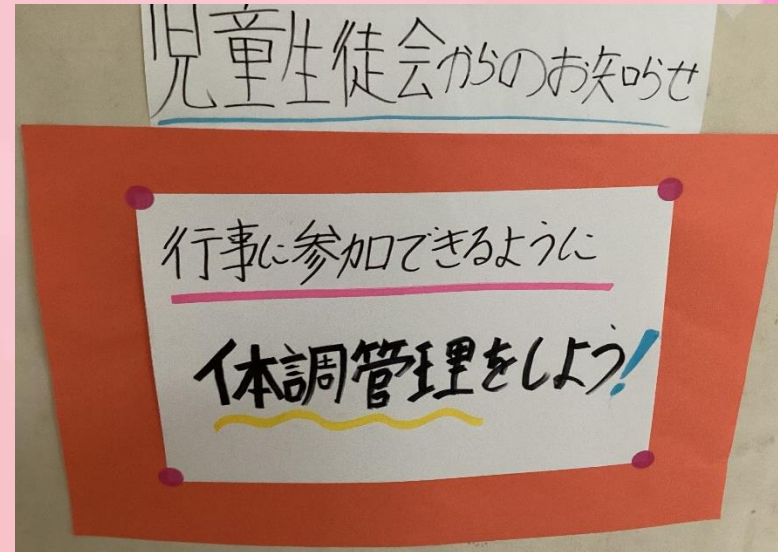 児童生徒会からのお知らせ
行事に参加できるように
体調管理をしよう!